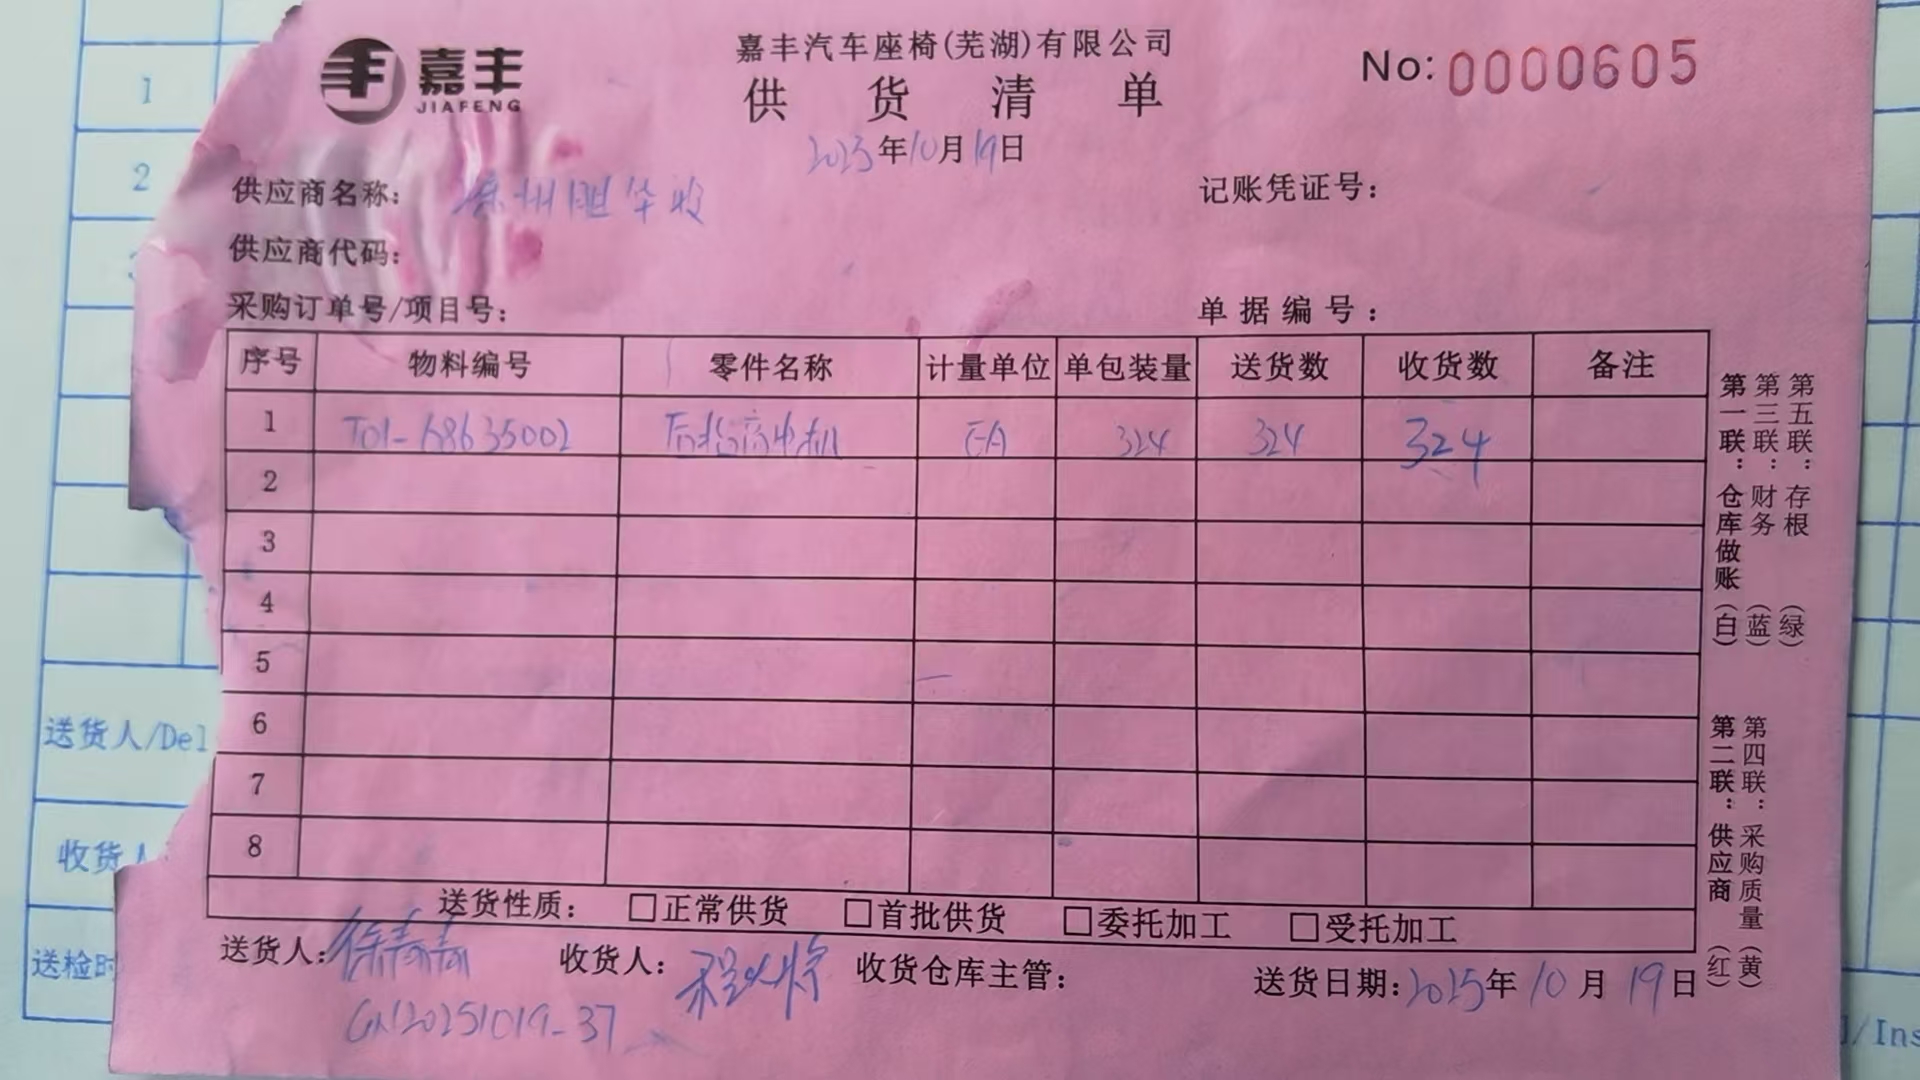 嘉丰
JIAFENG
嘉丰汽车座椅(芜湖)有限公司
No: 0000605
供货清单
2025年10月19日
供应商名称:
记账凭证号:
供应商代码:
采购订单号/项目号:
单据编号:
序号 物料编号 零件名称 计量单位 单包装量 送货数 收货数 备注
1 T01-68635002 后抬高电机 EA 324 324 324
2
3
4
5
6
7
8
送货性质: □正常供货 □首批供货 □委托加工 □受托加工
送货人: 收货人: 收货仓库主管: 送货日期: 2025年10月19日
GN20251019-37
第一联:仓库做账(白)
第三联:财务(蓝)
第五联:存根(绿)
第二联:供应商(红)
第四联:采购质量(黄)
1
2
送货人/Del
收货人
送检时
/Ins